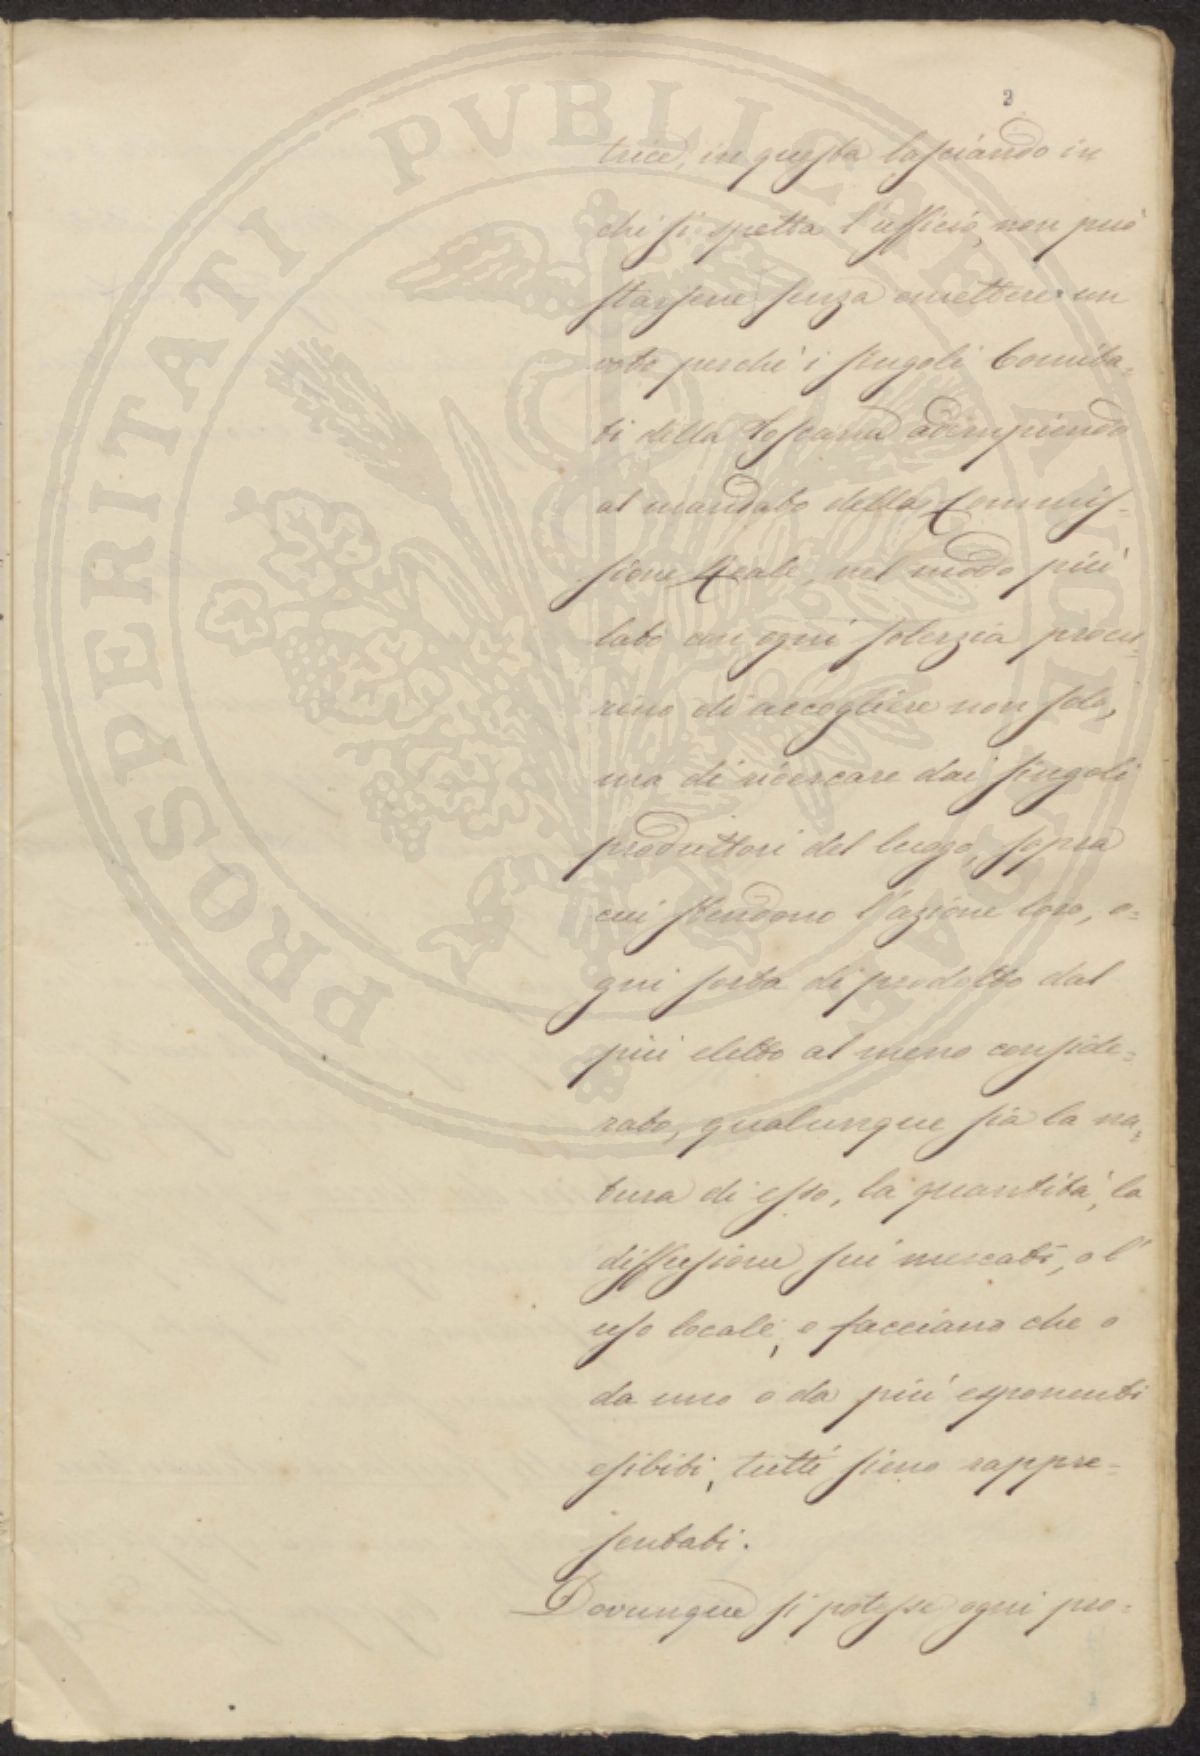 PROSPERITATI PUBLICAE AUGENDAE
2
trice, in questa lasciando in
chi si spetta l'ufficio, non può
starsene senza emettere un
voto perchè i singoli Comita=
ti della Toscana adempiendo
al mandato della Commis=
sione Reale, nel modo più
lato con ogni solerzia procu=
rino di accogliere non solo,
ma di ricercare dai singoli
produttori del luogo, sopra
cui stendono l'azione loro, o=
gni sorta di prodotto dal
più eletto al meno conside=
rato, qualunque sia la na=
tura di esso, la quantità, la
diffusione sui mercati, o l'
uso locale, e facciano che o
da uno o da più esponenti
esibiti, tutti sieno rappre=
sentati.
Dovunque si potesse ogni pro=